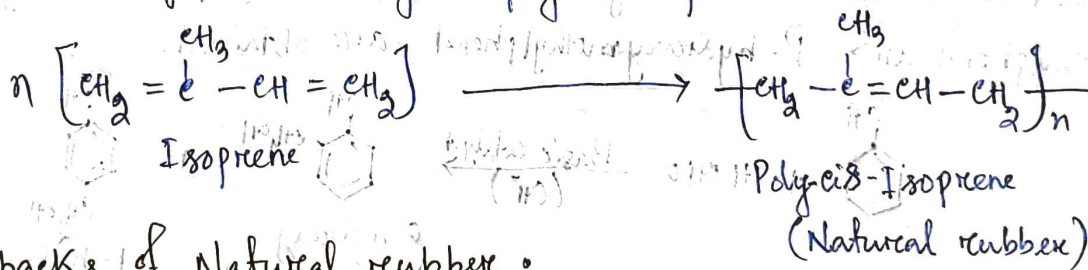 CH3 CH3
n [CH2 = C - CH = CH2] → [CH2 - C = CH - CH2]n
Isoprene Poly-cis-Isoprene
(Natural rubber)
backs of Natural rubber :